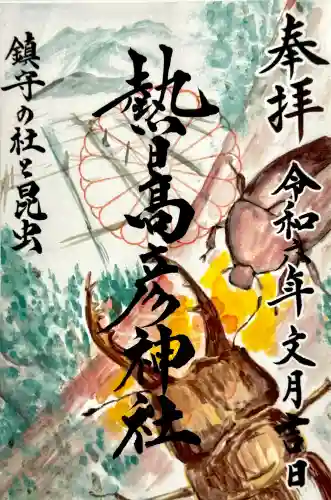 奉拝
令和六年文月吉日
熱日高彦神社
鎮守の杜と昆虫